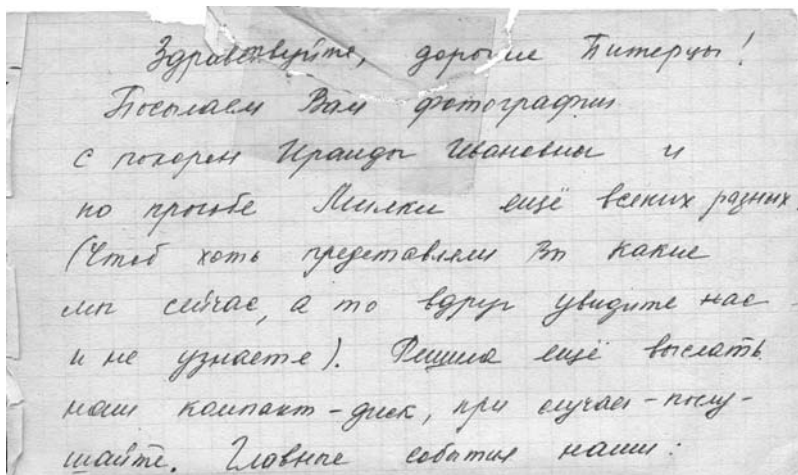 Здравствуйте, дорогие Питерцы!
Посылаем Вам фотографии
с похорон Ираиды Ивановны и
по просьбе Милки ещё всяких разных.
(Чтоб хоть представляли Вы какие
мы сейчас, а то вдруг увидите нас
и не узнаете). Решила ещё выслать
наш компакт-диск, при случае-послу-
шайте. Главные события наши: